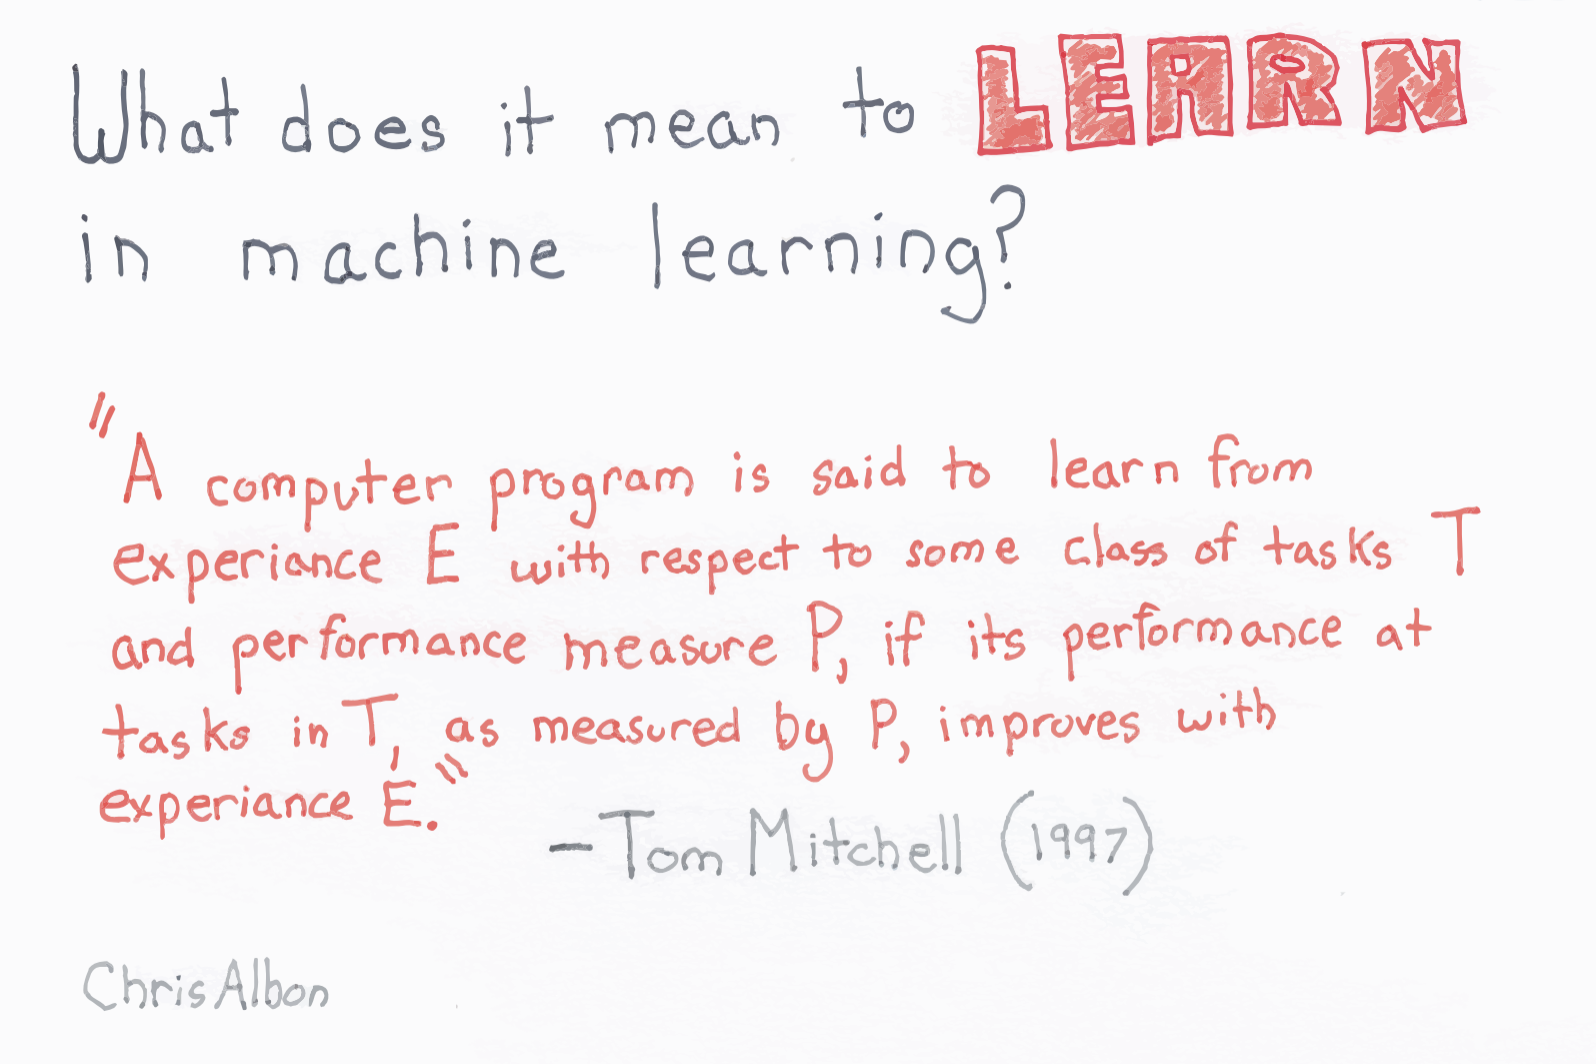 What does it mean to LEARN
in machine learning?
"A computer program is said to learn from
experiance E with respect to some class of tasks T
and performance measure P, if its performance at
tasks in T, as measured by P, improves with
experiance E."
-Tom Mitchell (1997)
Chris Albon